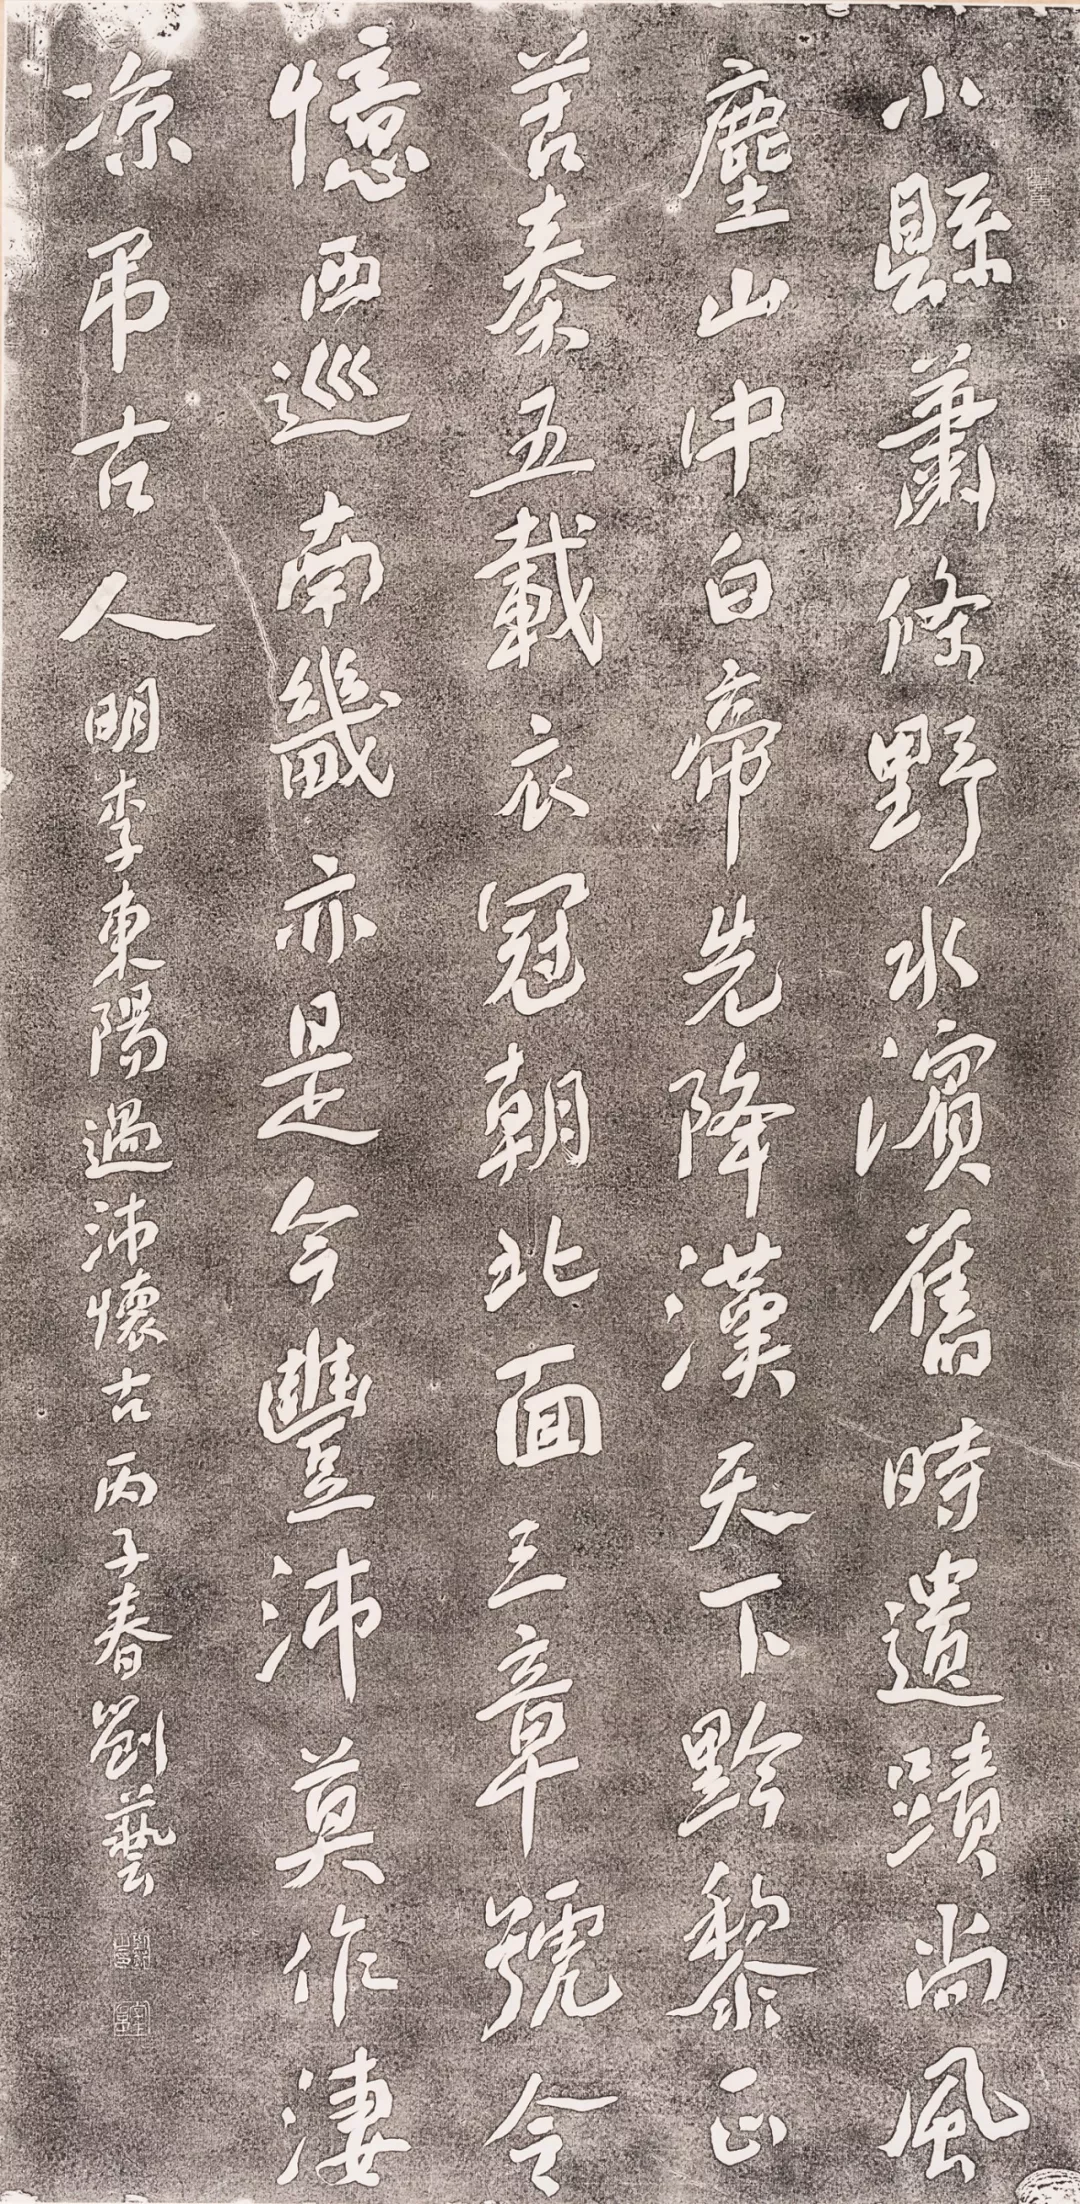 小縣蕭條野水濱舊時遺蹟尚風
塵山中白帝先降漢天下黔黎正
苦秦五載衣冠朝北面三章號令
憶西巡南畿亦是今豐沛莫作淒
涼弔古人明李東陽過沛懷古丙子春劉藝